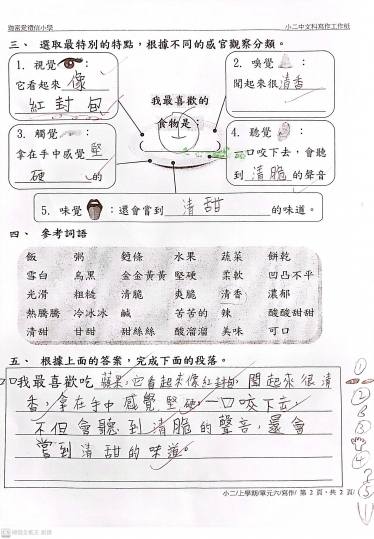 迦密愛禮信小學
小二中文科寫作工作紙
三、選取最特別的特點，根據不同的感官觀察分類。
1. 視覺：
它看起來 像
紅封包
2. 嗅覺：
聞起來很清香
我最喜歡的
食物是：
3. 觸覺：
拿在手中感覺 堅
硬 的
4. 聽覺：
一口咬下去，會聽
到 清脆 的聲音
5. 味覺：還會嘗到 清甜 的味道。
四、參考詞語
飯 粥 麪條 水果 蔬菜 餅乾
雪白 烏黑 金金黃黃 堅硬 柔軟 凹凸不平
光滑 粗糙 清脆 爽脆 清香 濃郁
熱騰騰 冷冰冰 鹹 苦苦的 辣 酸酸甜甜
清甜 甘甜 甜絲絲 酸溜溜 美味 可口
五、根據上面的答案，完成下面的段落。
我最喜歡吃蘋果，它看起來像紅封包，聞起來很清
香，拿在手中感覺堅硬，一口咬下去，
不但會聽到清脆的聲音，還會
嘗到清甜的味道。
小二/上學期/單元六/寫作/ 第 2 頁，共 2 頁/